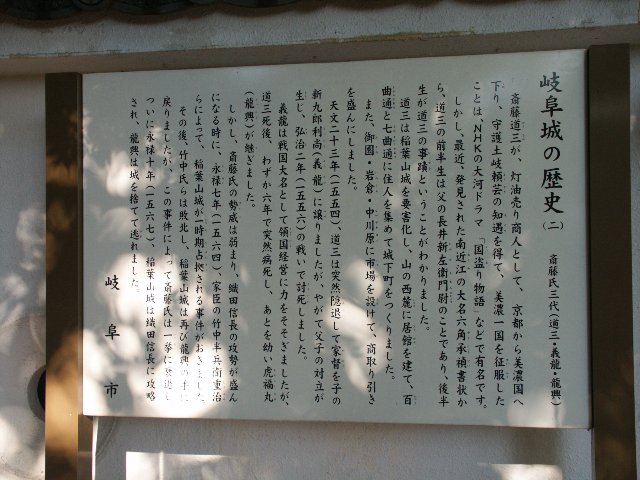 岐阜城の歴史(二) 斎藤氏三代(道三・義龍・龍興)
斎藤道三が、灯油売り商人として、京都から美濃国へ
下り、守護土岐頼芸の知遇を得て、美濃一国を征服した
ことは、NHKの大河ドラマ「国盗り物語」などで有名です。
しかし、最近、発見された南近江の大名六角承禎書状か
ら、道三の前半生は父の長井新左衛門尉のことであり、後半
生が道三の事蹟ということがわかりました。
道三は稲葉山城を要害化し、山の西麓に居館を建て、百
曲通と七曲通に住人を集めて城下町をつくりました。
また、御園・岩倉・中川原に市場を設けて、商取り引き
を盛んにしました。
天文二十三年(一五五四)、道三は突然隠退して家督を子の
新九郎利尚(義龍)に譲りましたが、やがて父子の対立が
生じ、弘治二年(一五五六)の戦いで討死しました。
義龍は戦国大名として領国経営に力をそそぎましたが、
道三死後、わずか六年で突然病死し、あとを幼い虎福丸
(龍興)が継ぎました。
しかし、斎藤氏の勢威は弱まり、織田信長の攻勢が盛ん
になる時に、永禄七年(一五六四)、家臣の竹中半兵衛重治
らによって、稲葉山城が一時期占拠される事件がおきました。
その後、竹中氏らは敗北し、稲葉山城は再び龍興の手に
戻りましたが、この事件によって斎藤氏は一挙に衰退し
ついに永禄十年(一五六七)、稲葉山城は織田信長に攻略
され、龍興は城を捨てて逃れました。
岐阜市